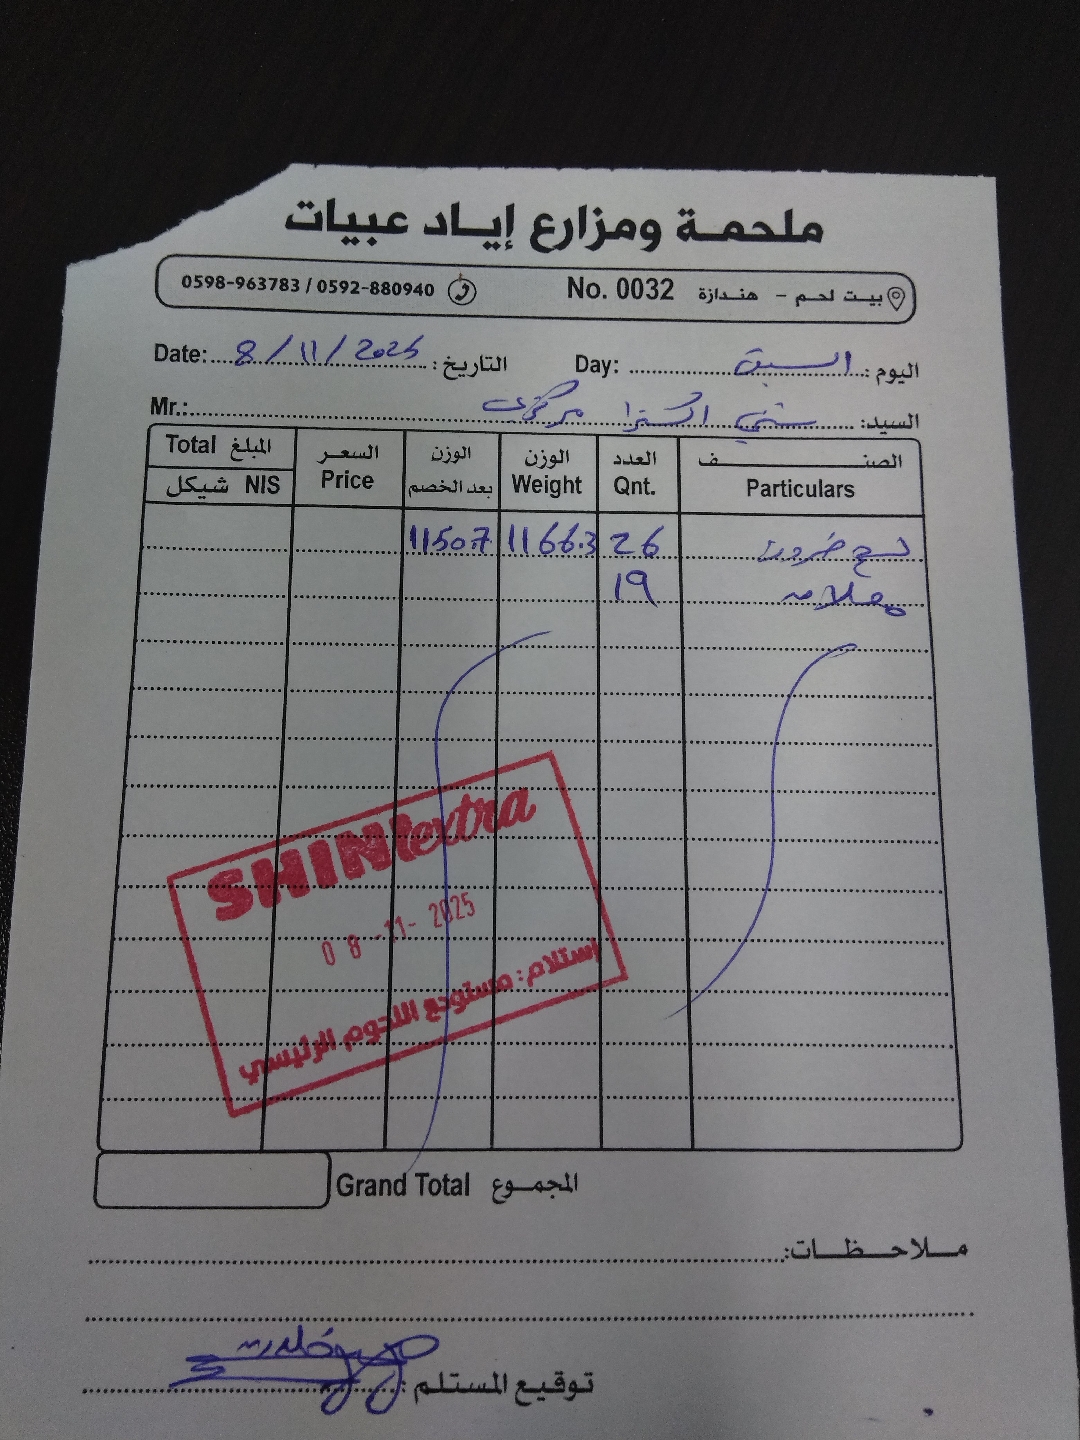 ملحمة ومزارع إياد عبيات
بيت لحم - هندازة No. 0032 0598-963783 / 0592-880940
اليوم: السبت Day: التاريخ: 8/11/2025 Date:
السيد: شني اكسترا مركزي Mr.:
الصنف العدد الوزن الوزن السعر المبلغ Total
Particulars Qnt. Weight بعد الخصم Price شيكل NIS
26 1166.3 1150.7
19
SHINI extra
08-11-2025
إستلام: مستودع اللحوم الرئيسي
المجموع Grand Total
ملاحظات:
توقيع المستلم: